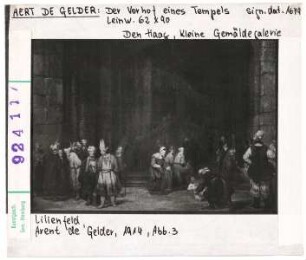 AERT DE GELDER: Der Vorhof eines Tempels Sign. dat. 1679
Leinw. 62 x 90
Den Haag, Kleine Gemäldegalerie
Lilienfeld
Arent de Gelder, 1914, Abb. 3